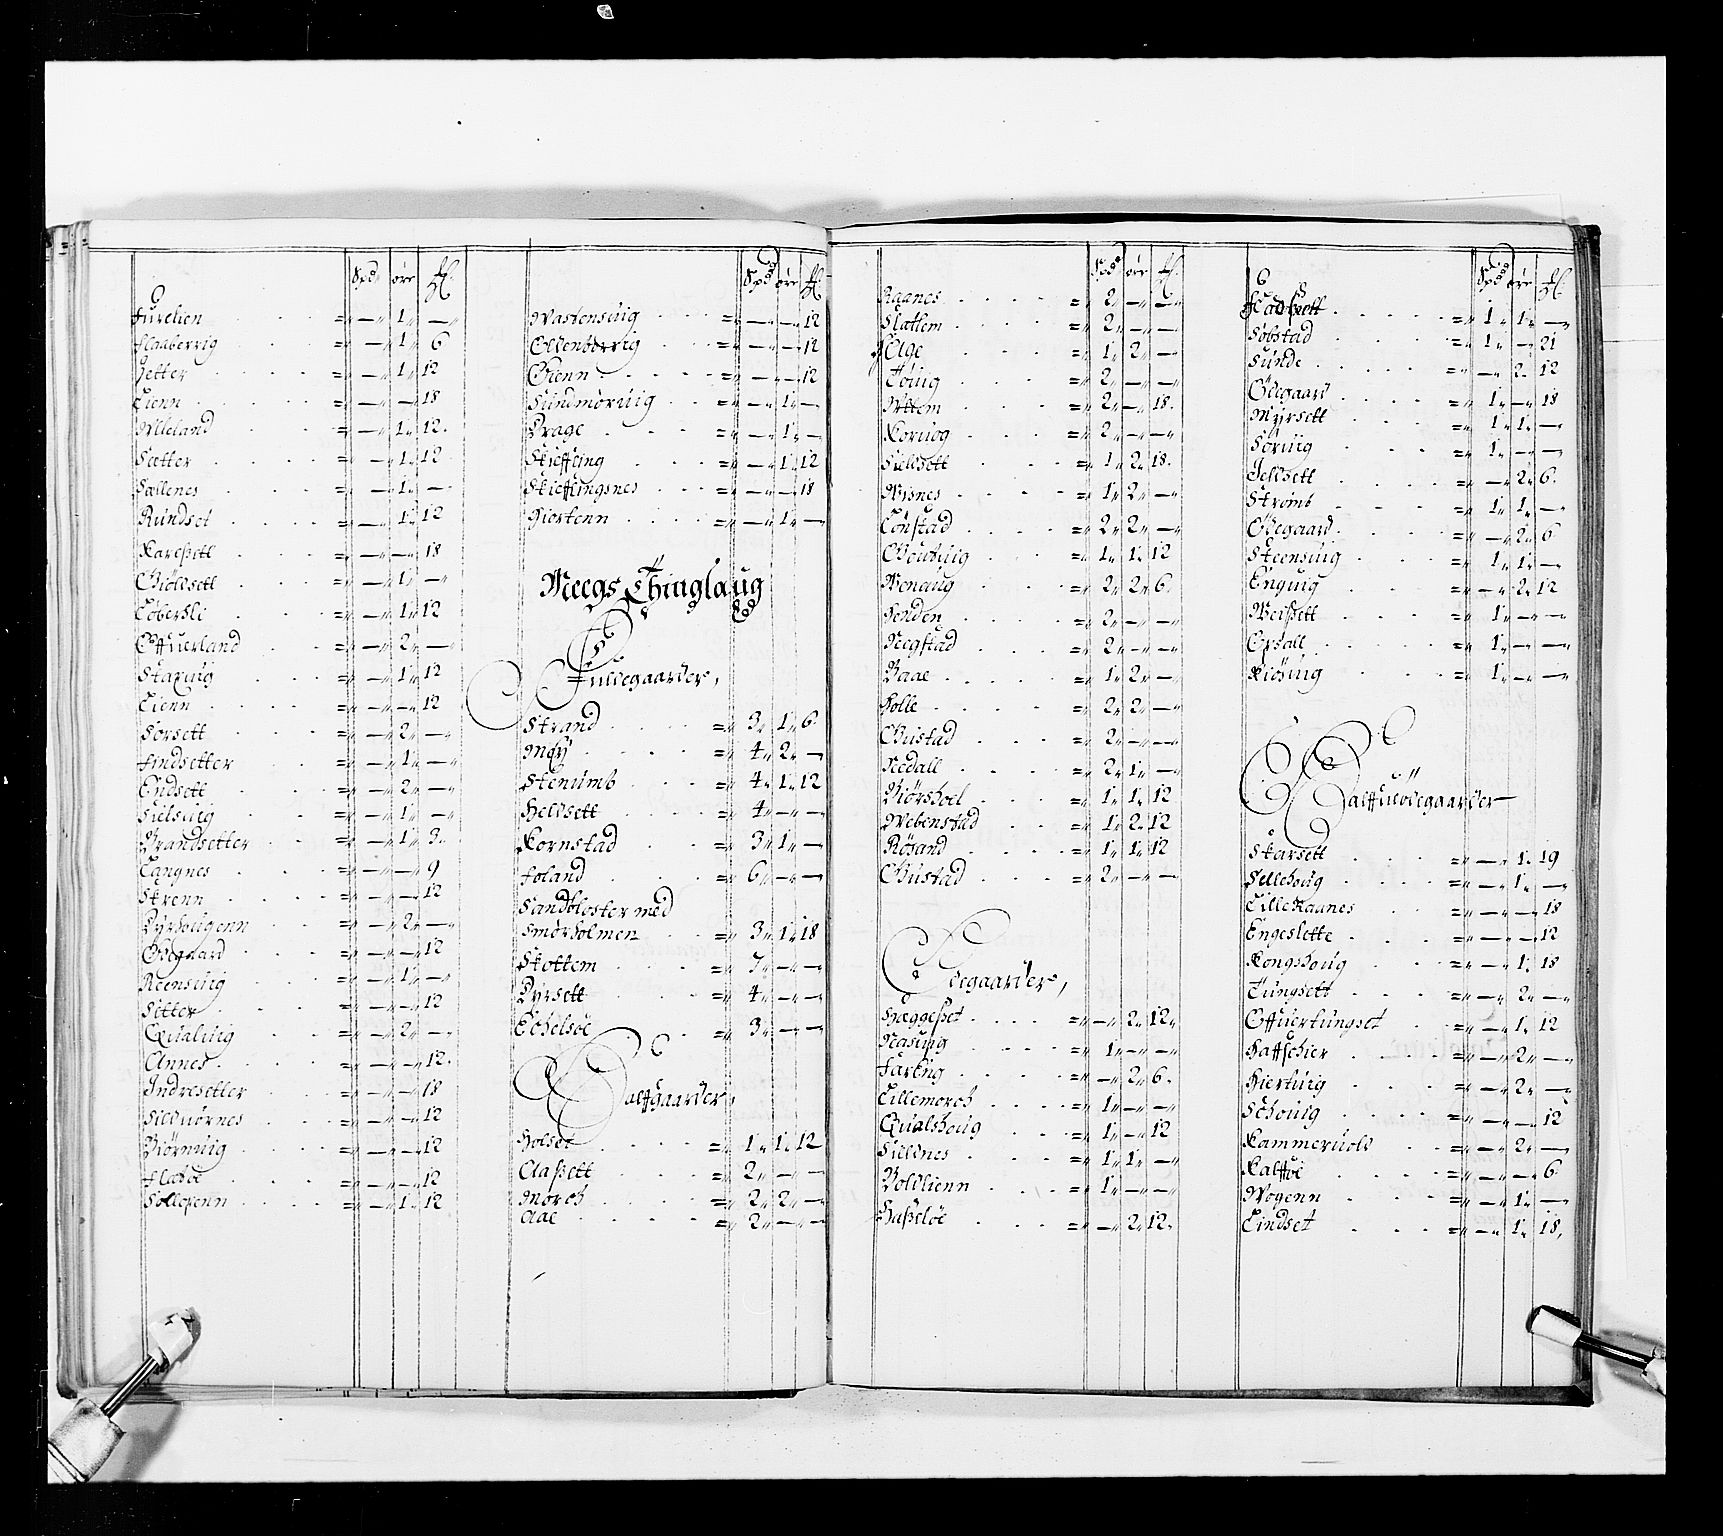 Spd. öre
Furelien = — 1 —
Flaaberrig = — 1 6
Setter = — 1 12
Lienn = — — 18
Melland = — 1 12
Sætter = — 1 12
Sællenes = — 1 —
Rundset = — 1 12
Karessett = — — 18
Gioldsett = — 1 —
Eobersli = — 1 12
Offuerland = — 2 —
Staxuig = — 1 12
Lienn = — — 12
Sorsett = — 2 —
Findsetter = — 1 —
Endsett = — 2 —
Sielsuig = — 1 —
Brandsetter = — 1 3
Tangnes = — — 9
Strenn = — — 12
Dyrhougenn = — 2 —
Ødegaard = — — 12
Reensuig = — 1 —
Setter = — — 12
Qualuig = — 2 —
Annes = — — 12
Indresetter = — — 18
Sildnörnes = — — 12
Biörnuig = — — 12
Fladöe = — — 12
Sollesenn = — 1 12
Spd öre
Wastensuig = — — 12
Ellenberrig = — — 12
Øienn = — — 12
Sundmöruig = — 1 —
Drage = — 1 —
Skieffling = — 1 12
Skiefflingsnes = — — 18
Hiertenn = — 1 —
Meegs Thinglaug
Fuldegaarder,
Strand = 3 1 6
Møy = 4 2 —
Stenumb = 4 1 12
Heldsett = 4 — —
Kornstad = 3 1 —
Foland = 6 — —
Sandbloster med
Smörholmen = 3 1 18
Skottem = 7 — —
Dyrsett = 4 — —
Eehelsöe = 3 — —
Halffgaarder,
Holset = 1 1 12
Aassett = 2 — —
Moreh = 2 2 —
Aae = 2 — —
Spd öre
Raanes = 2 — —
Slattem = 2 — —
Elge = 1 2 —
Töuig = 2 — —
Mttem = 2 — 18
Koruog = 2 — —
Sieldsett = 1 2 18
Wisnes = 1 2 —
Lönstad = 2 2 —
= 1 1 12
Wenaug = 2 2 6
Henden = 2 — —
Neegstad = 2 — —
Baae = 1 2 —
Holle = 2 2 —
Gustad = 2 — —
Nedall = 2 1 —
Biörshoel = 1 1 12
Webenstad = 1 2 12
Rösand = 1 1 12
Gustad = 2 — —
Ødegaarder,
Hæggesset = — 2 12
Nasuig = 1 — —
Faring = — 2 6
Lillemoreh = 1 — —
Qualshoug = 1 — 12
Sieldnes = 1 1 —
Boldlienn = 1 — —
Hasselöe = — 2 12
Spd öre
Kadsett = 1 1 —
Söbstad = 1 — 21
Sunde = — 2 12
Ödegaard = 1 — 18
Myrsett = 1 1 —
Söruig = 1 — —
Jeldsett = — 2 6
Strömb = 1 1 —
Ödegaard = — 2 6
Steensuig = 1 1 —
Enguig = — 2 12
Weissett = 1 — —
Opsall = 1 — —
Kiösuig = 1 — —
Halffuödegaarder
Skarsett = — 1 19
Sellehoug = — 1 —
Lille Raanes = — — 18
Engeslette = — — 12
Kongshoug = — 1 18
Tungsett = — 2 —
Offuertungset = — 1 12
Haffschier = — 2 —
Hiertuig = — 2 —
Schouig = — — 12
Kammeruold = — 2 —
Kalffue = — — 6
Wogenn = — 1 —
Lindset = — 1 18